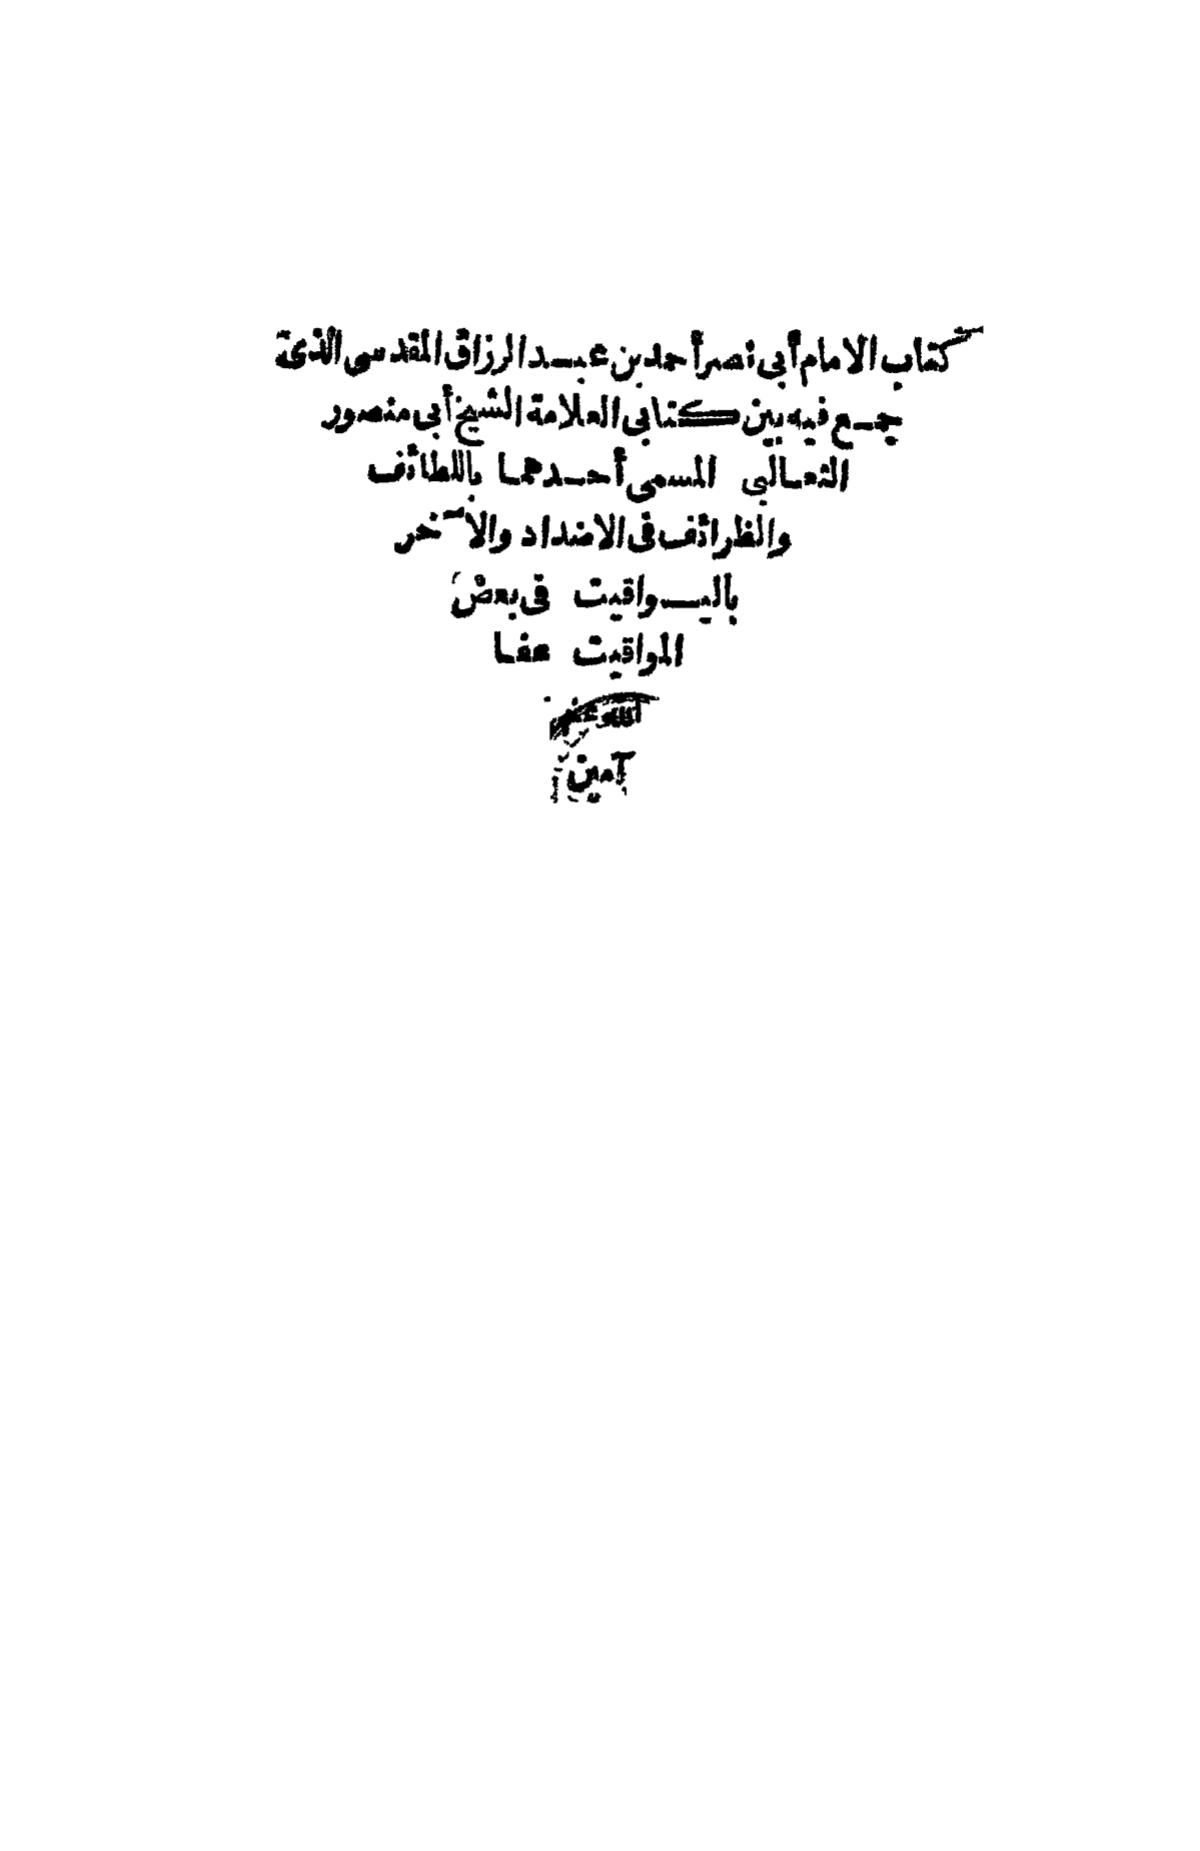 كتاب الامام أبى نصر أحمد بن عبد الرزاق المقدسى الذى
جمع فيه بين كتابى العلامة الشيخ أبى منصور
الثعالبى المسمى أحدهما باللطائف
والظرائف فى الاضداد والآخر
باليواقيت فى بعض
المواقيت عفا
الله عنهم
آمين